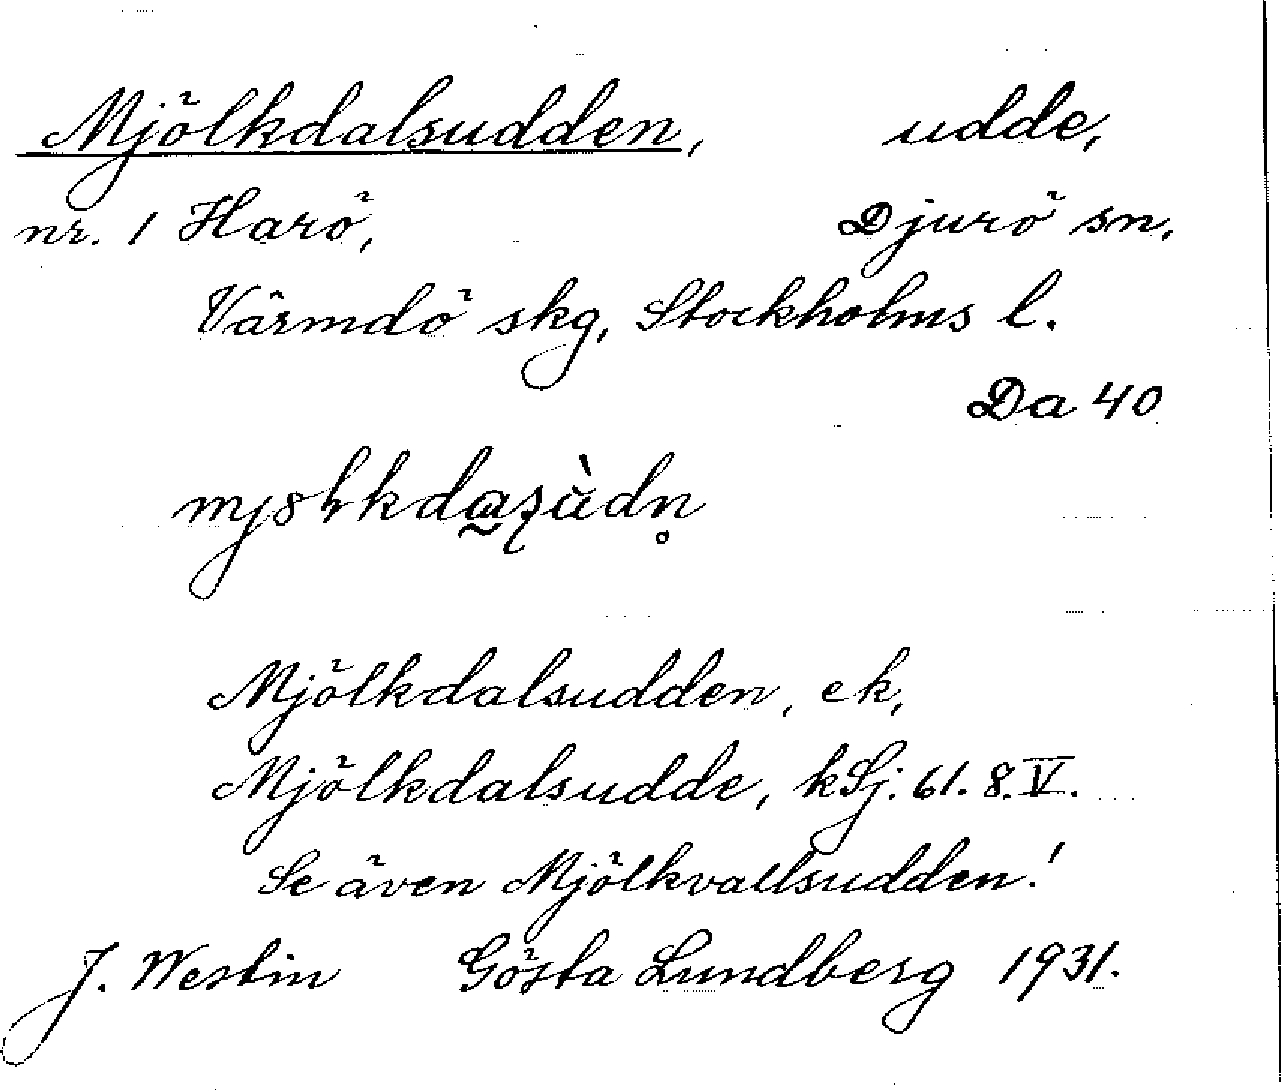 Mjölkdalsudden, udde,
nr. 1 Harö, Djurö sn.
Värmdö skg, Stockholms l.
Da 40
Mjölkdalsudden, ek,
Mjölkdalsudde, kSj. 61. 8. V.
Se även Mjölkvallsudden!
J. Westin Gösta Lundberg 1931.